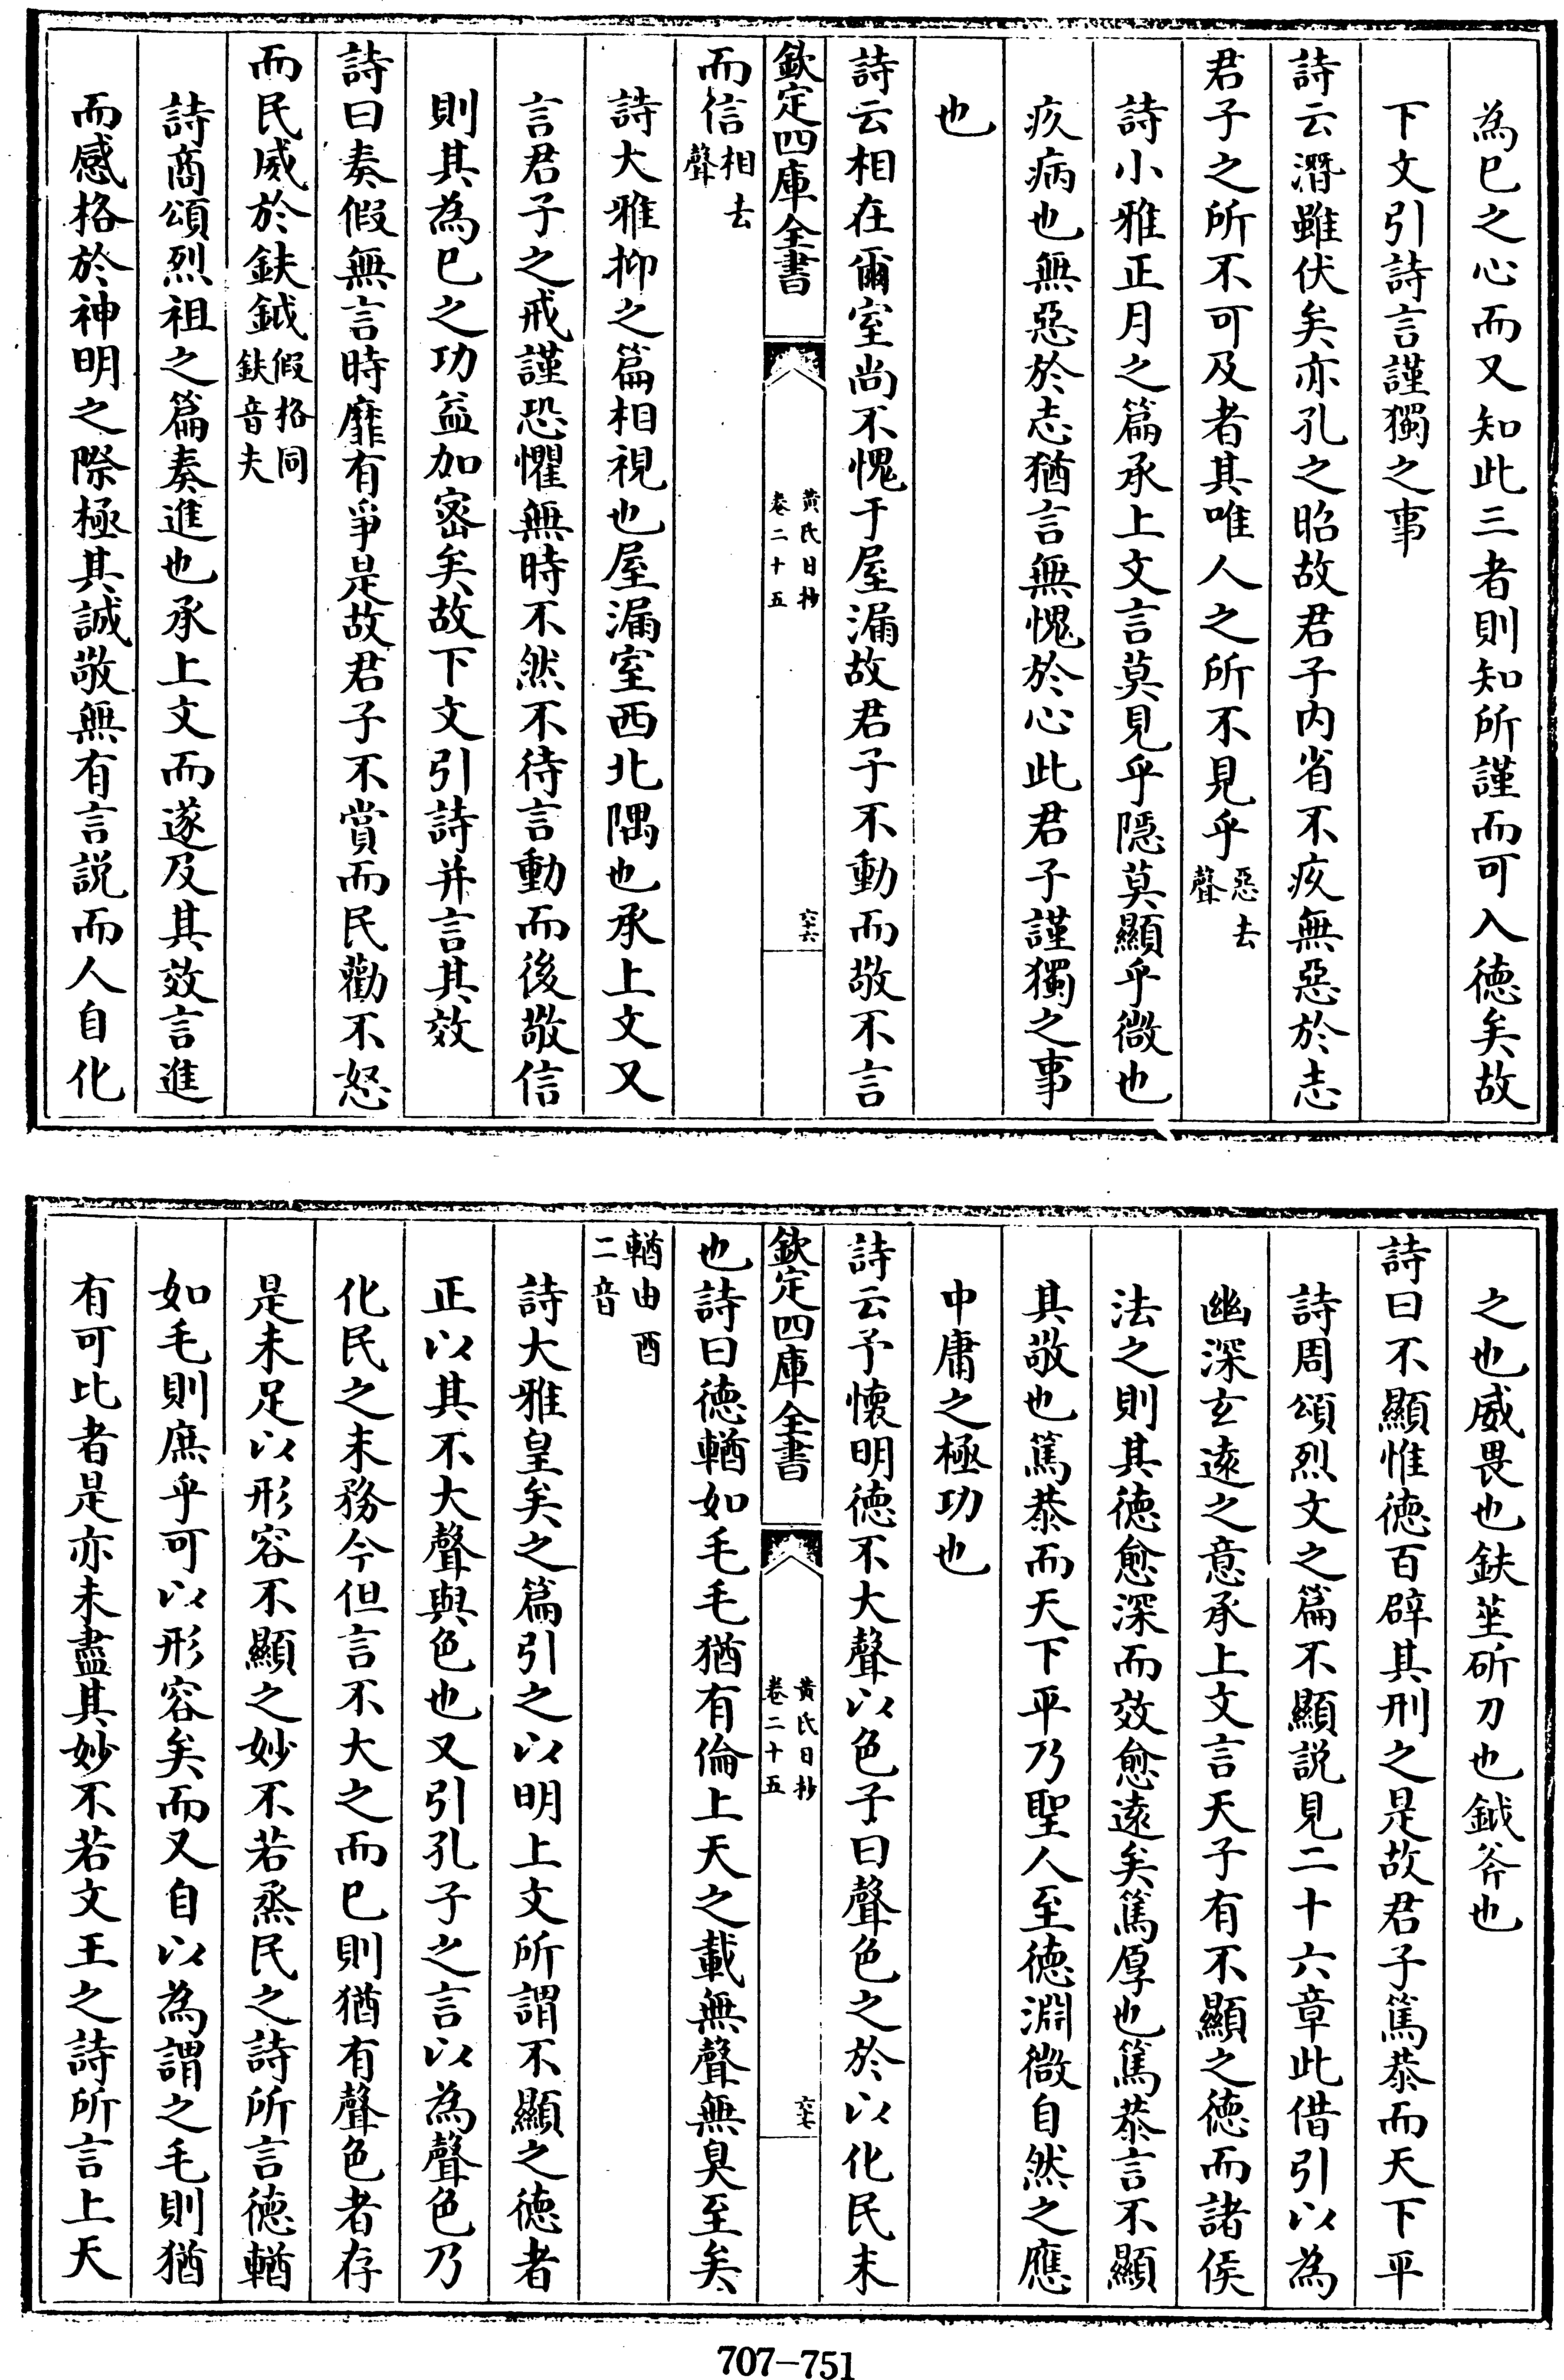 為已之心而又知此三者則知所謹而可入德矣故
下文引詩言謹獨之事
詩云潛雖伏矣亦孔之昭故君子内省不疚無惡於志
君子之所不可及者其唯人之所不見乎惡去聲
詩小雅正月之篇承上文言莫見乎隱莫顯乎微也
疚病也無惡於志猶言無愧於心此君子謹獨之事
也
詩云相在爾室尚不愧于屋漏故君子不動而敬不言
欽定四庫全書
黃氏日抄
卷二十五
六十六
而信相去聲
詩大雅抑之篇相視也屋漏室西北隅也承上文又
言君子之戒謹恐懼無時不然不待言動而後敬信
則其為已之功益加密矣故下文引詩并言其效
詩曰奏假無言時靡有爭是故君子不賞而民勸不怒
而民威於鈇鉞假格同鈇音夫
詩商頌烈祖之篇奏進也承上文而遂及其效言進
而感格於神明之際極其誠敬無有言説而人自化
之也威畏也鈇莝斫刀也鉞斧也
詩曰不顯惟德百辟其刑之是故君子篤恭而天下平
詩周頌烈文之篇不顯説見二十六章此借引以為
幽深玄遠之意承上文言天子有不顯之德而諸侯
法之則其德愈深而效愈遠矣篤厚也篤恭言不顯
其敬也篤恭而天下平乃聖人至德淵微自然之應
中庸之極功也
詩云予懷明德不大聲以色子曰聲色之於以化民末
欽定四庫全書
黃氏日抄
卷二十五
六十七
也詩曰德輶如毛毛猶有倫上天之載無聲無臭至矣
輶由酉二音
詩大雅皇矣之篇引之以明上文所謂不顯之德者
正以其不大聲與色也又引孔子之言以為聲色乃
化民之末務今但言不大之而已則猶有聲色者存
是未足以形容不顯之妙不若烝民之詩所言德輶
如毛則庶乎可以形容矣而又自以為謂之毛則猶
有可比者是亦未盡其妙不若文王之詩所言上天
707-751